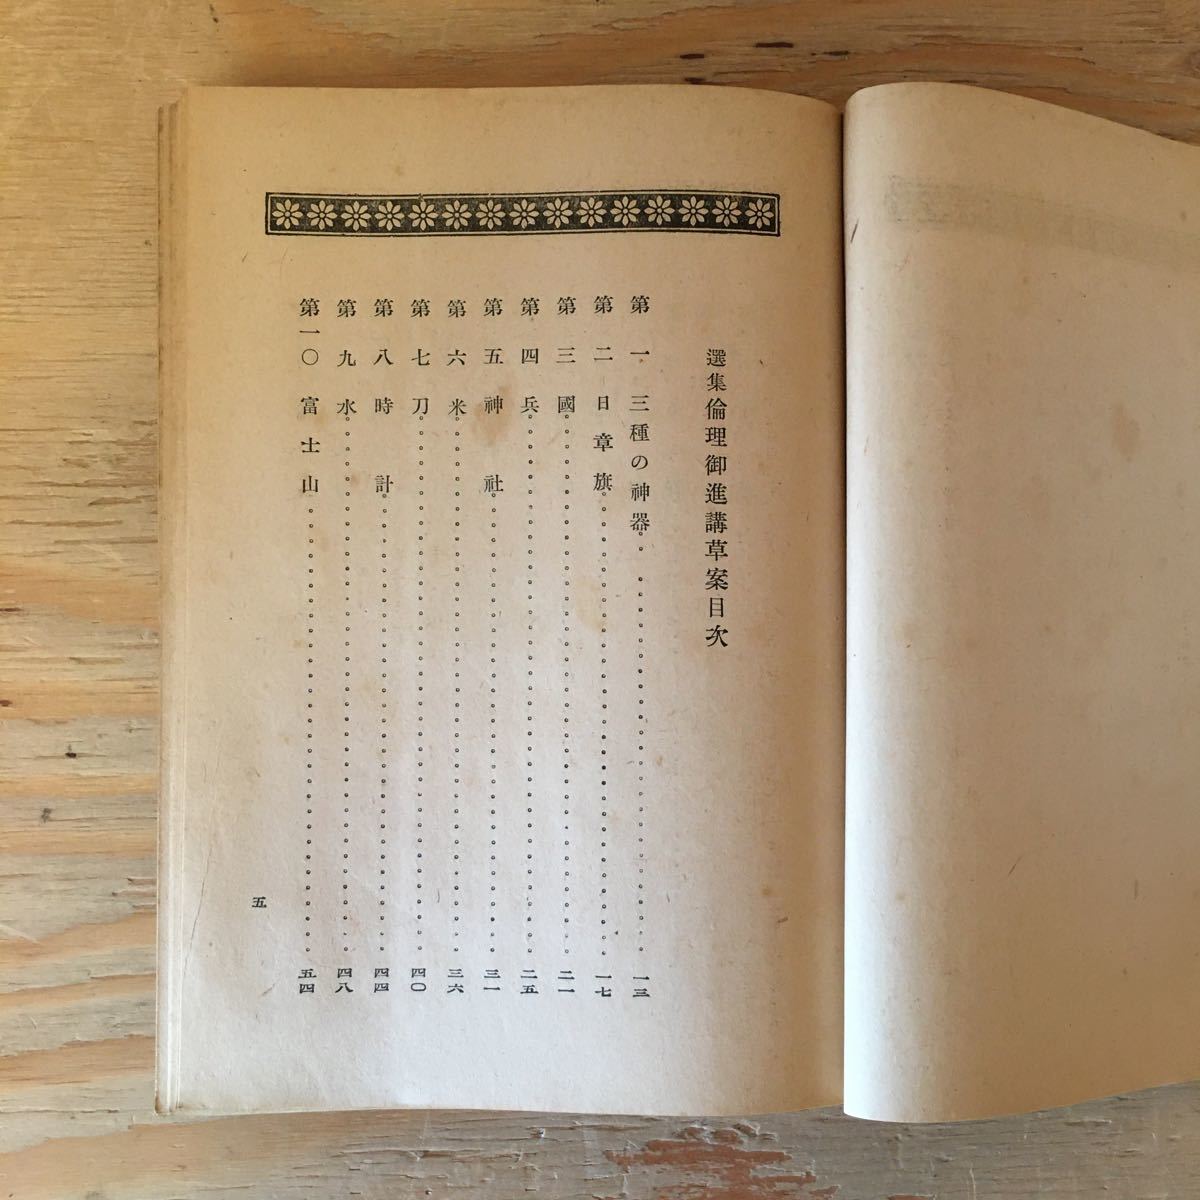 選集倫理御進講草案目次
第一 三種の神器 一三
第二 日章旗 一七
第三 國 二一
第四 兵 二五
第五 神社 三一
第六 米 三六
第七 刀 四〇
第八 時計 四四
第九 水 四八
第一〇 富士山 五四
五